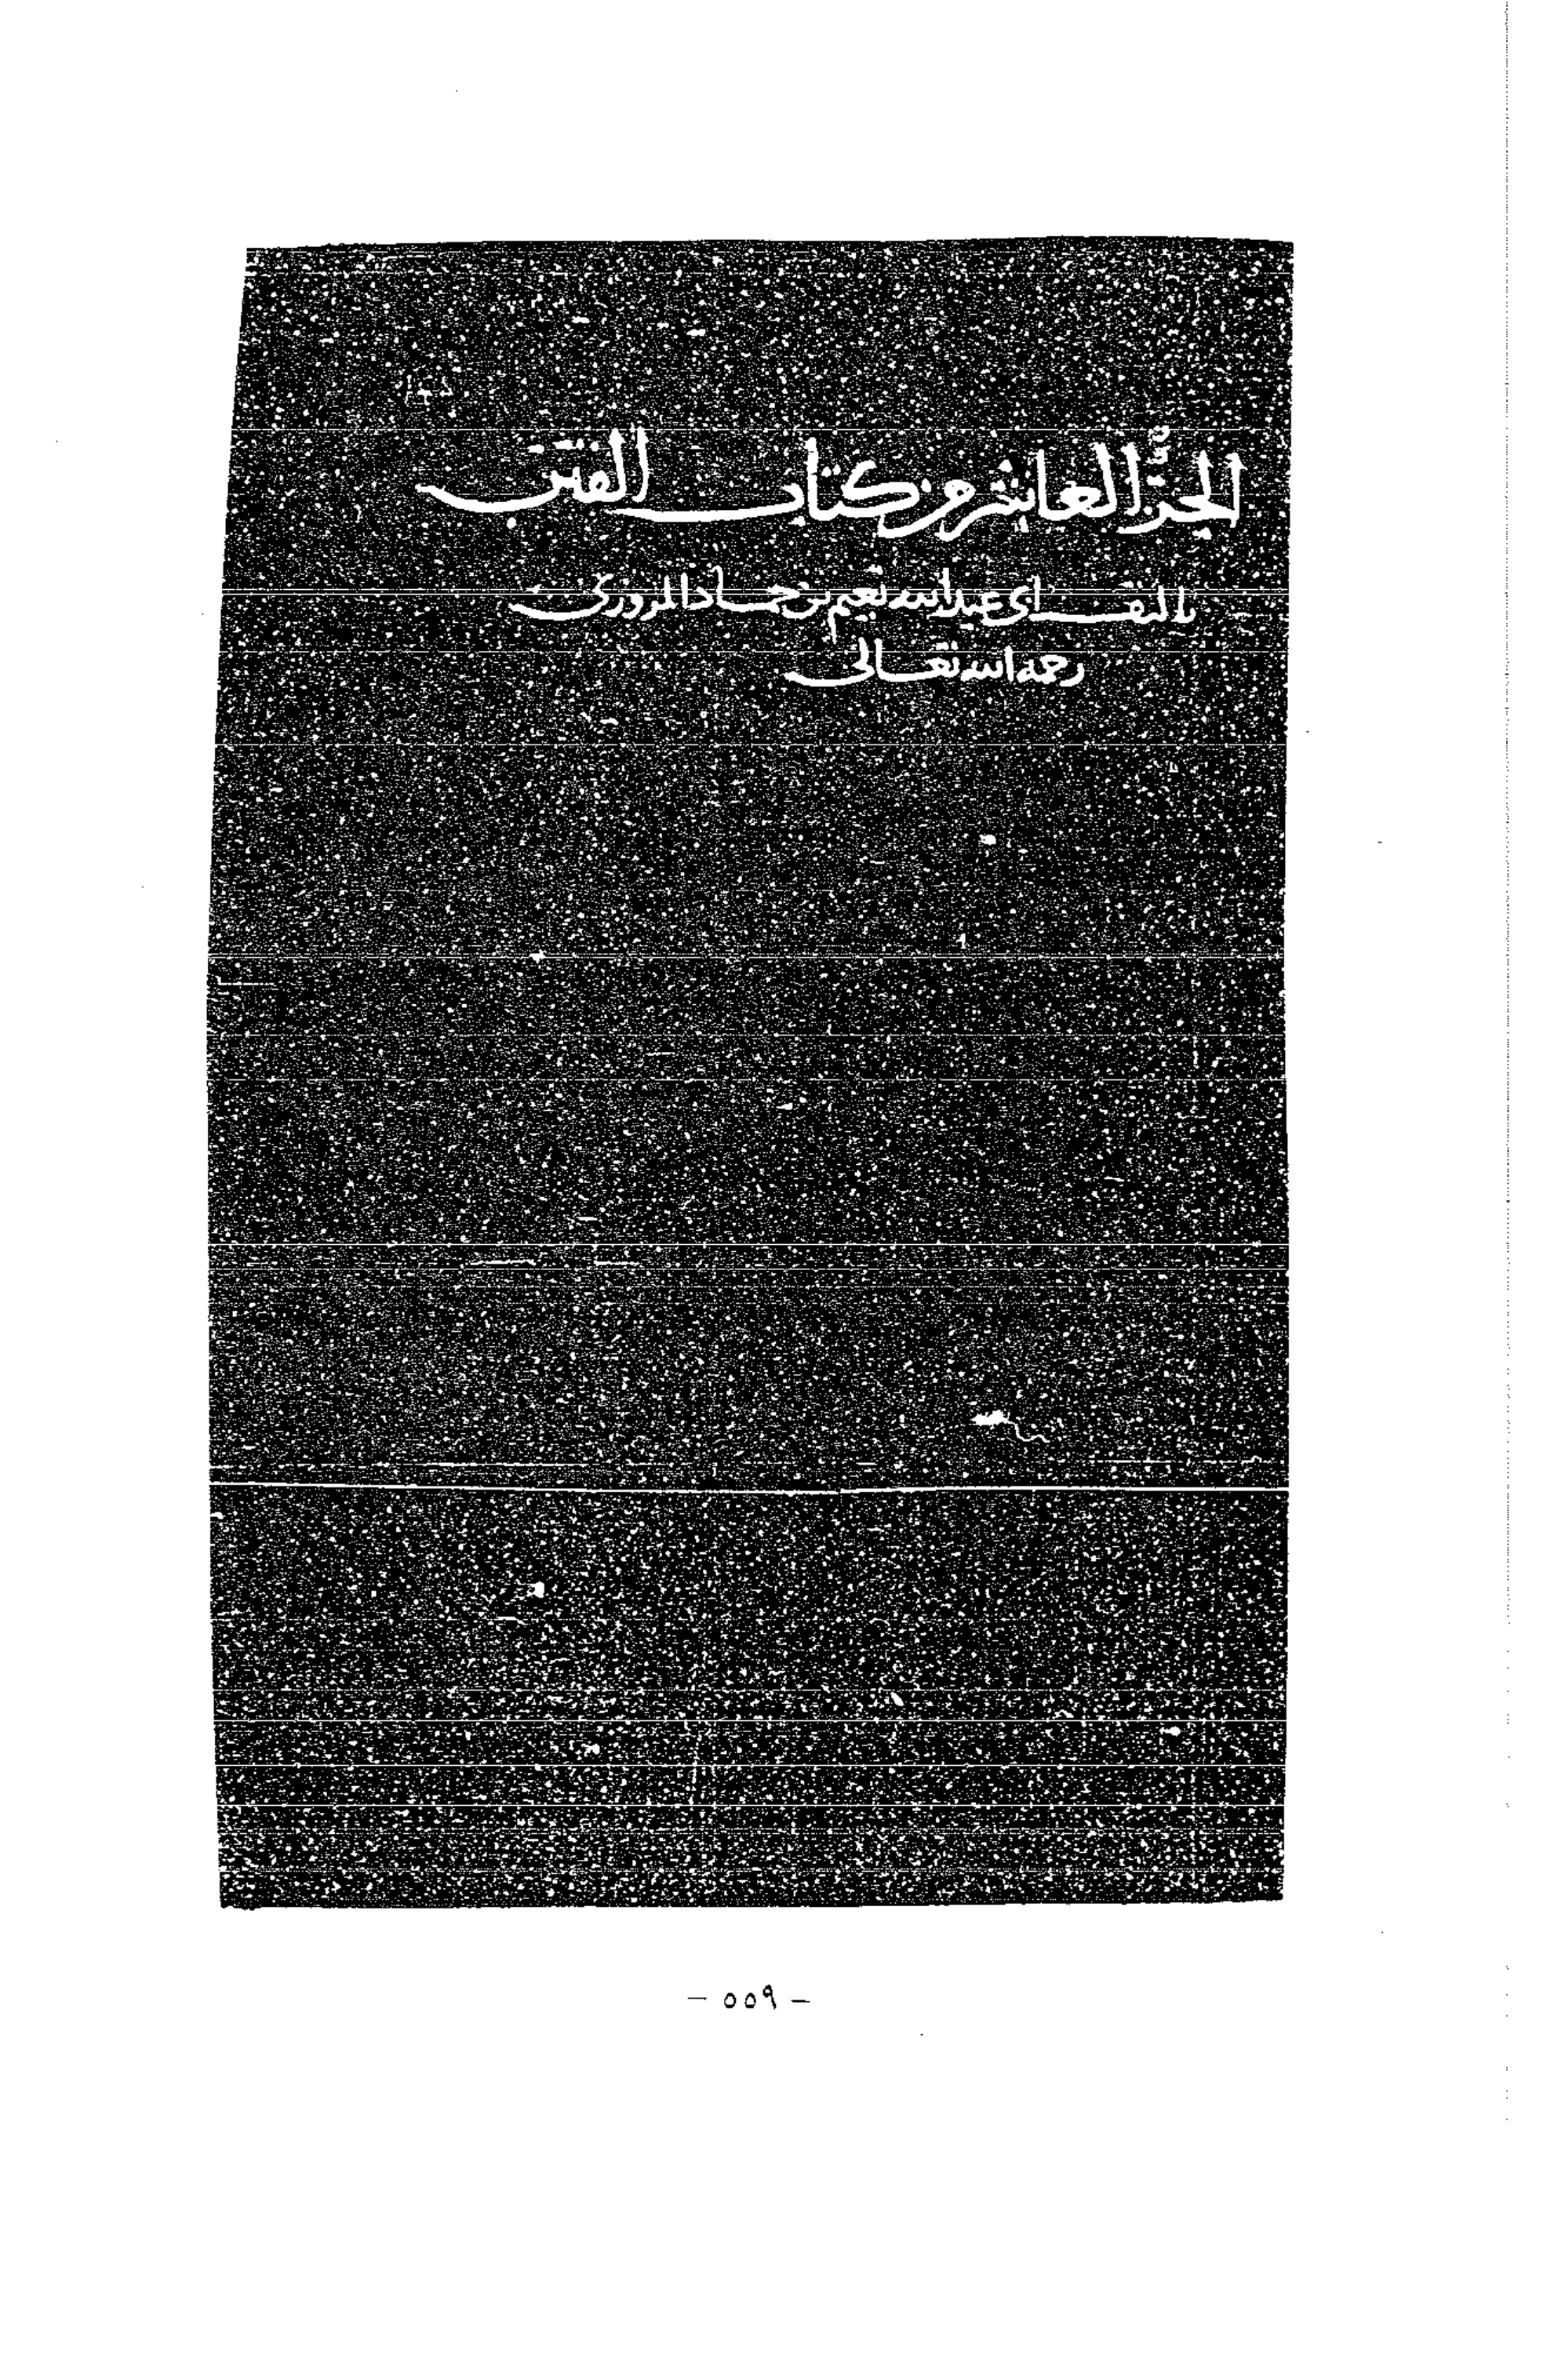 الجزء العاشر من كتاب الفتن
تاليف ابي عبدالله نعيم بن حماد المروزي
رحمه الله تعالى
- ٥٥٩ -